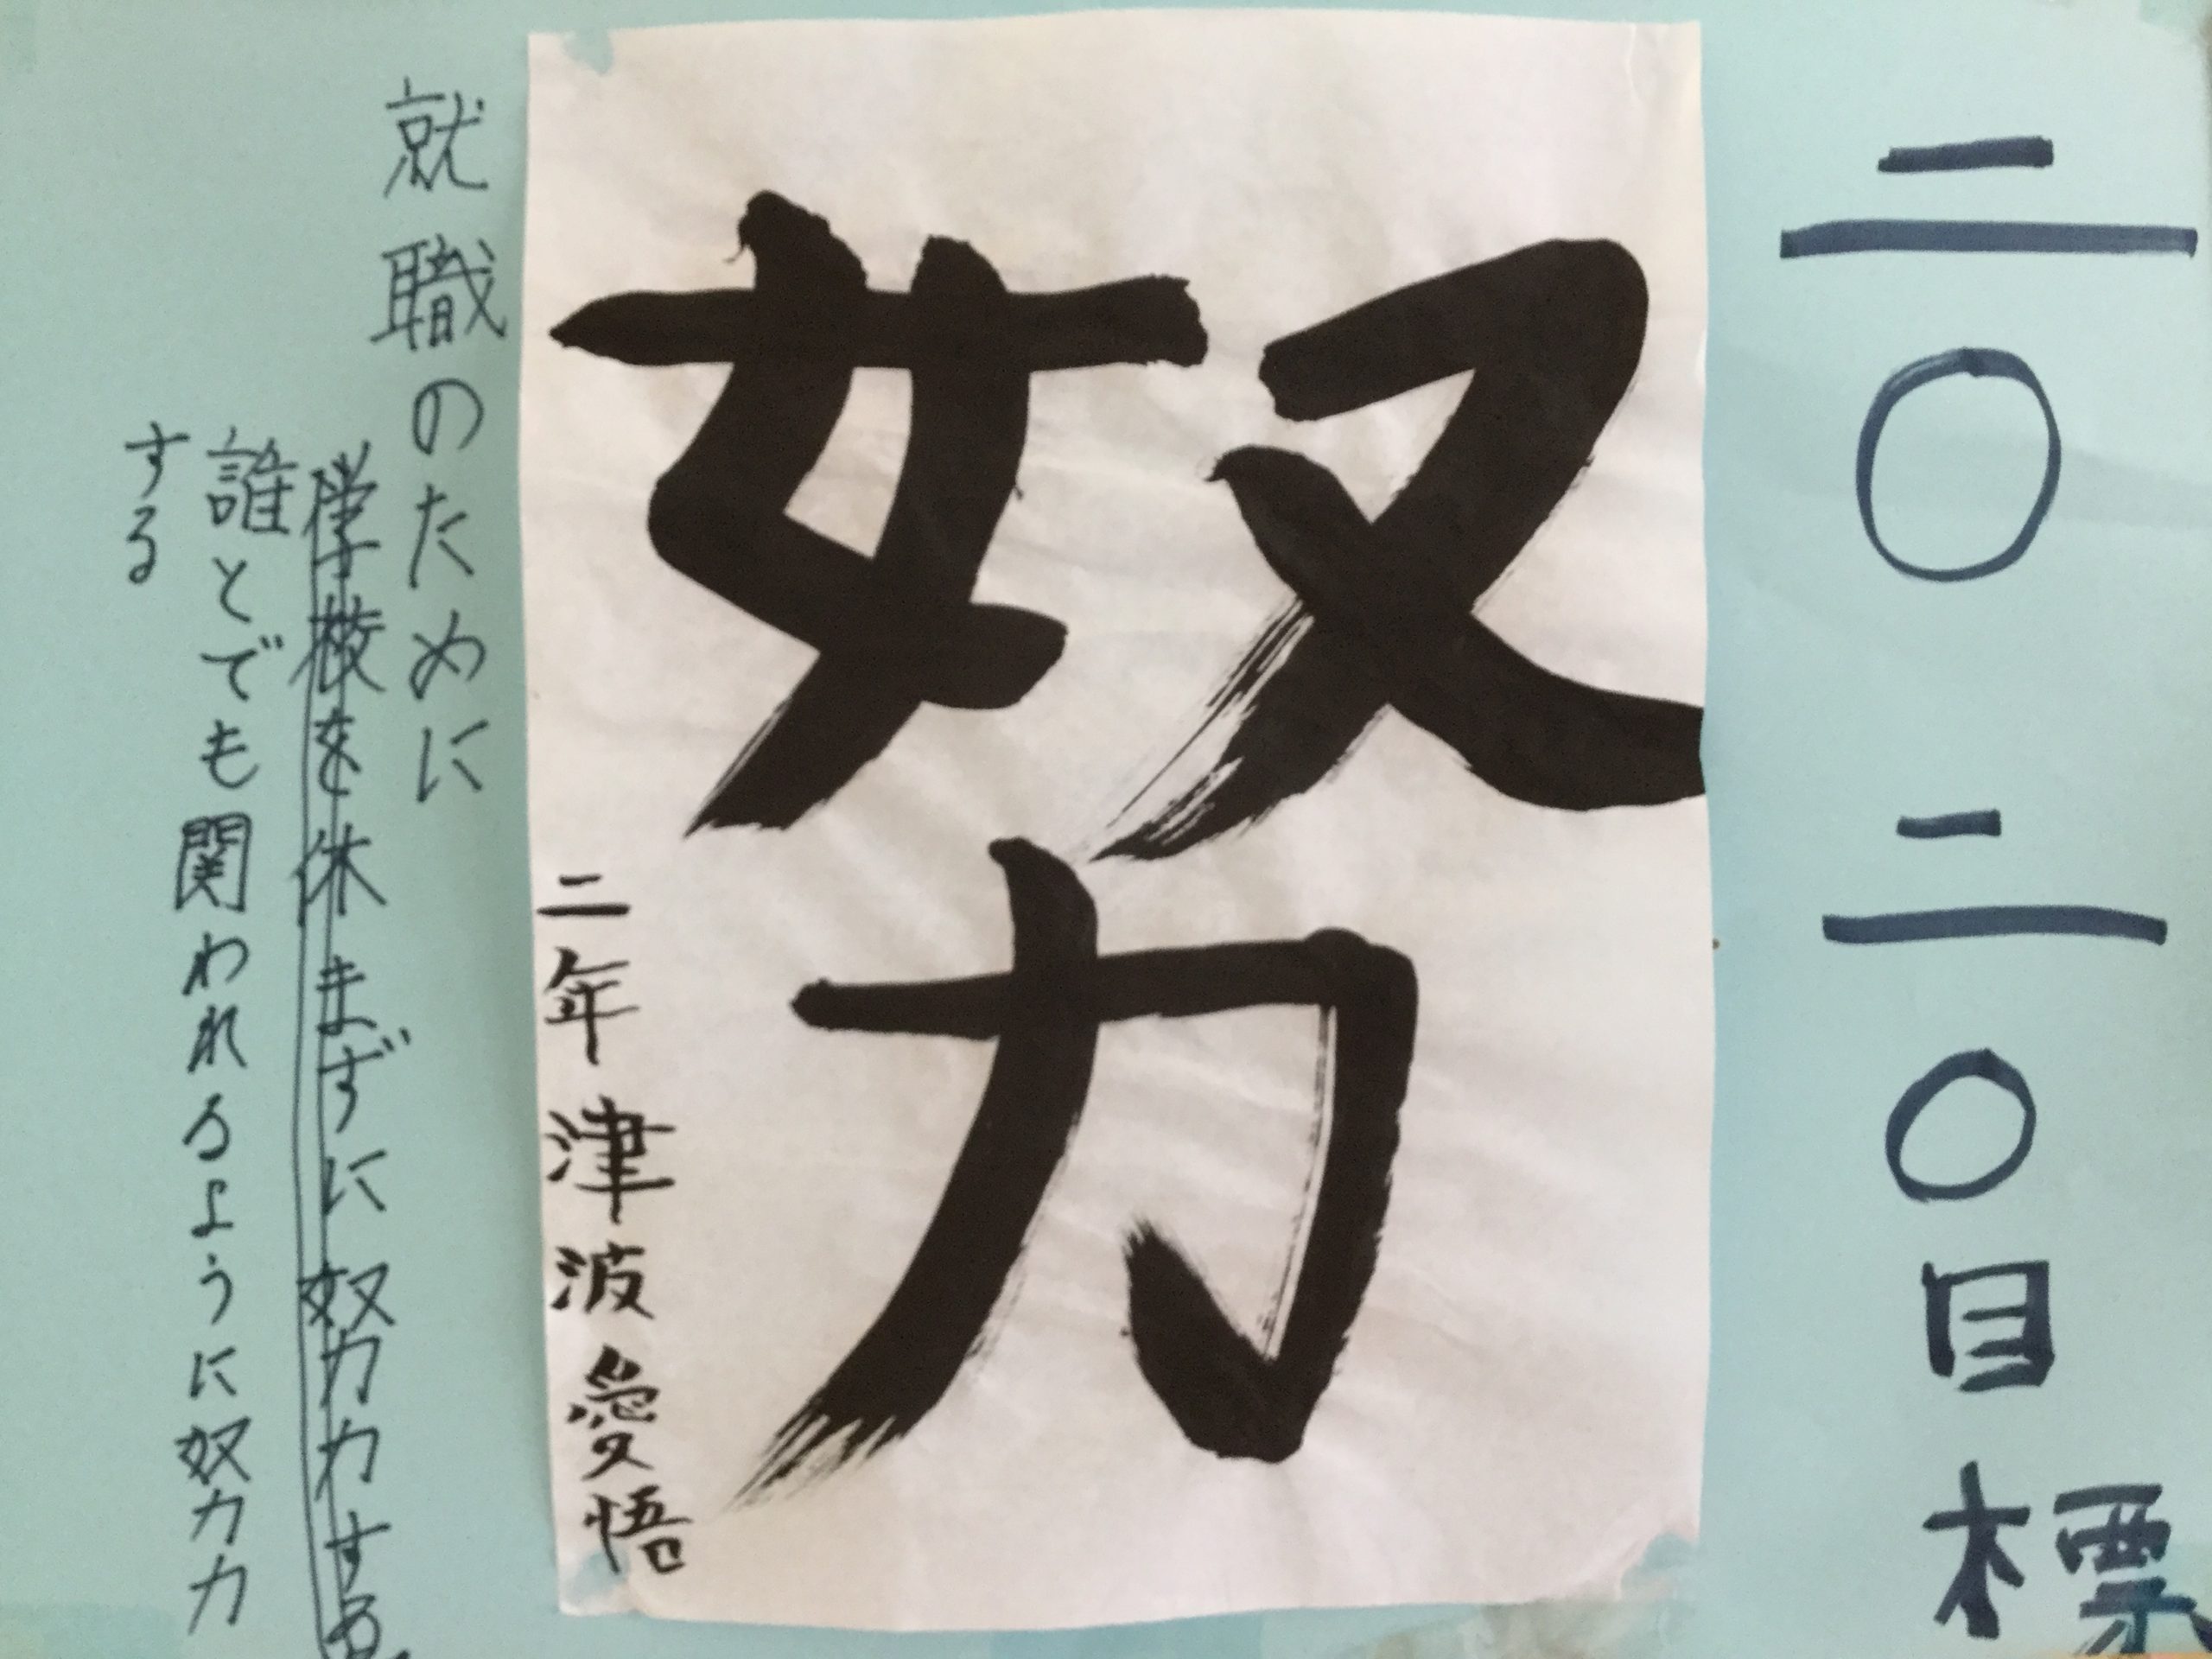 二〇二〇目標
努力
二年津波愛悟
就職のために
学校を休まずに努力力する
誰とでも関われるように努力力
する